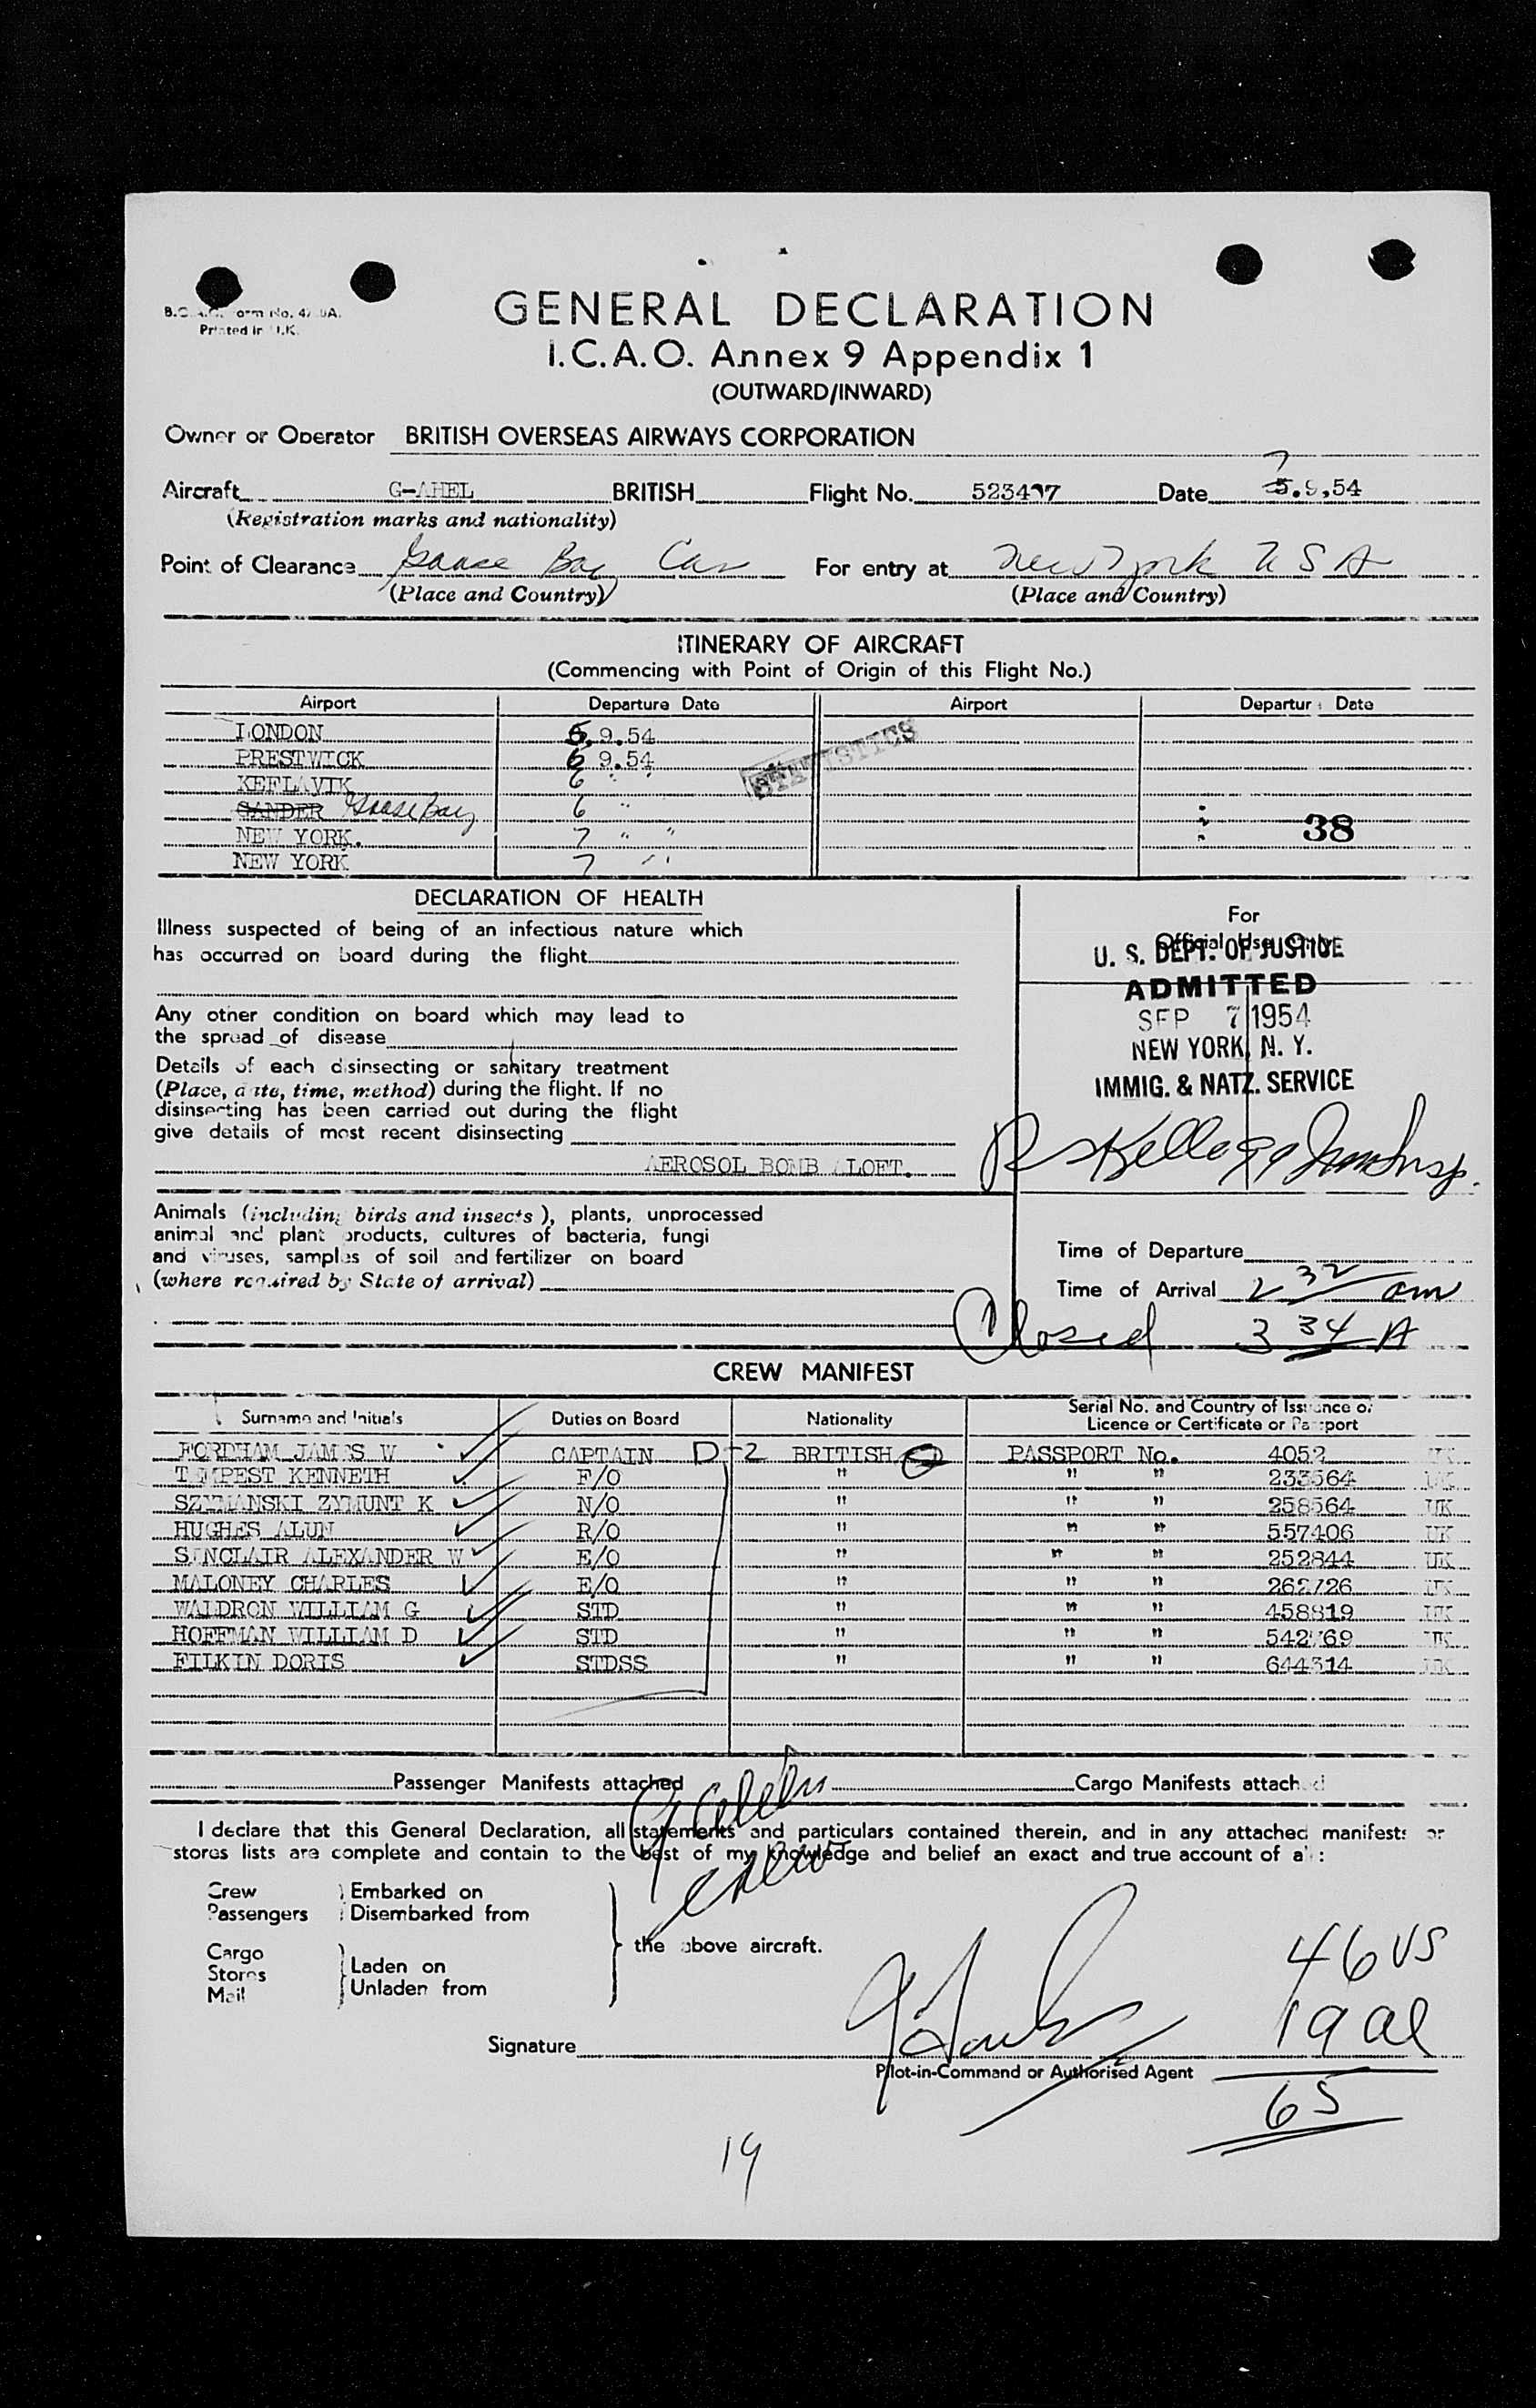 B.O.A.C. Form No.
Printed in U.K.
GENERAL DECLARATION
I.C.A.O. Annex 9 Appendix 1
(OUTWARD/INWARD)
Owner or Operator BRITISH OVERSEAS AIRWAYS CORPORATION
Aircraft G-AHEL BRITISH Flight No. Date 7 5.9.54
(Registration marks and nationality)
Point of Clearance Goose Bay Can For entry at New York USA
(Place and Country) (Place and Country)
ITINERARY OF AIRCRAFT
(Commencing with Point of Origin of this Flight No.)
Airport Departure Date Airport Departure Date
LONDON 6.9.54
STATISTICS
PRESTWICK 6 9.54
KEFLAVIK 6 " "
GANDER Goose Bay 6 "
NEW YORK. 7 " " 38
NEW YORK 7 "
DECLARATION OF HEALTH
Illness suspected of being of an infectious nature which
has occurred on board during the flight
Any other condition on board which may lead to
the spread of disease
Details of each disinsecting or sanitary treatment
(Place, date, time, method) during the flight. If no
disinsecting has been carried out during the flight
give details of most recent disinsecting
AEROSOL BOMB ALOFT.
For
Official Use Only
U. S. DEPT. OF JUSTICE
ADMITTED
SEP 7 1954
NEW YORK, N. Y.
IMMIG. & NATZ. SERVICE
R S Kellogg Imm Insp.
Animals (including birds and insects), plants, unprocessed
animal and plant products, cultures of bacteria, fungi
and viruses, samples of soil and fertilizer on board
(where required by State of arrival)
Time of Departure
Time of Arrival 2 32 am
Closed 3 34 A
CREW MANIFEST
Surname and Initials Duties on Board Nationality Serial No. and Country of Issuance of
Licence or Certificate or Passport
FORDHAM JAMES W CAPTAIN D-2 BRITISH PASSPORT No. 4052 UK
TEMPEST KENNETH F/O " " " 233564 UK
SZYMANSKI ZYMUNT K N/O " " " 258564 UK
HUGHES ALUN R/O " " " 557406 UK
SINCLAIR ALEXANDER W E/O " " " 252844 UK
MALONEY CHARLES E/O " " " 262726 UK
WALDRON WILLIAM G STD " " " 458819 UK
HOFFMAN WILLIAM D STD " " " UK
FILKIN DORIS STDSS " " " 644314 UK
Passenger Manifests attached Cargo Manifests attached
9 alien
crew
I declare that this General Declaration, all statements and particulars contained therein, and in any attached manifests or
stores lists are complete and contain to the best of my knowledge and belief an exact and true account of all :
Crew Embarked on
Passengers Disembarked from
the above aircraft.
Cargo
Stores Laden on
Mail Unladen from
46 US
19 al
65
Signature
Pilot-in-Command or Authorised Agent
19